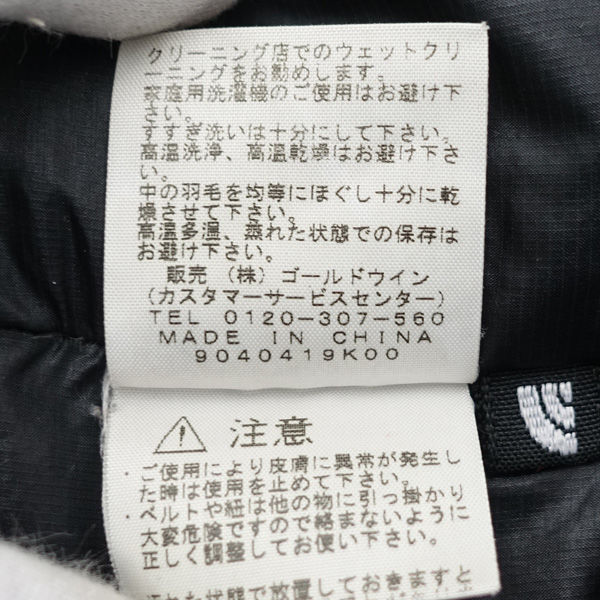 クリーニング店でのウェットクリ
ーニングをお勧めします。
家庭用洗濯機のご使用はお避け下
さい。
すすぎ洗いは十分にして下さい。
高温洗浄、高温乾燥はお避け下さ
い。
中の羽毛を均等にほぐし十分に乾
燥させて下さい。
高温多湿、蒸れた状態での保存は
お避け下さい。
販売 (株) ゴールドウイン
(カスタマーサービスセンター)
TEL 0120-307-560
MADE IN CHINA
9040419K00
注意
・ご使用により皮膚に異常が発生し
た時は使用を止めて下さい。
・ベルトや紐は他の物に引っ掛かり
大変危険ですので絡まないように
正しく調整してお使い下さい。
れた状態で放置しておきますと